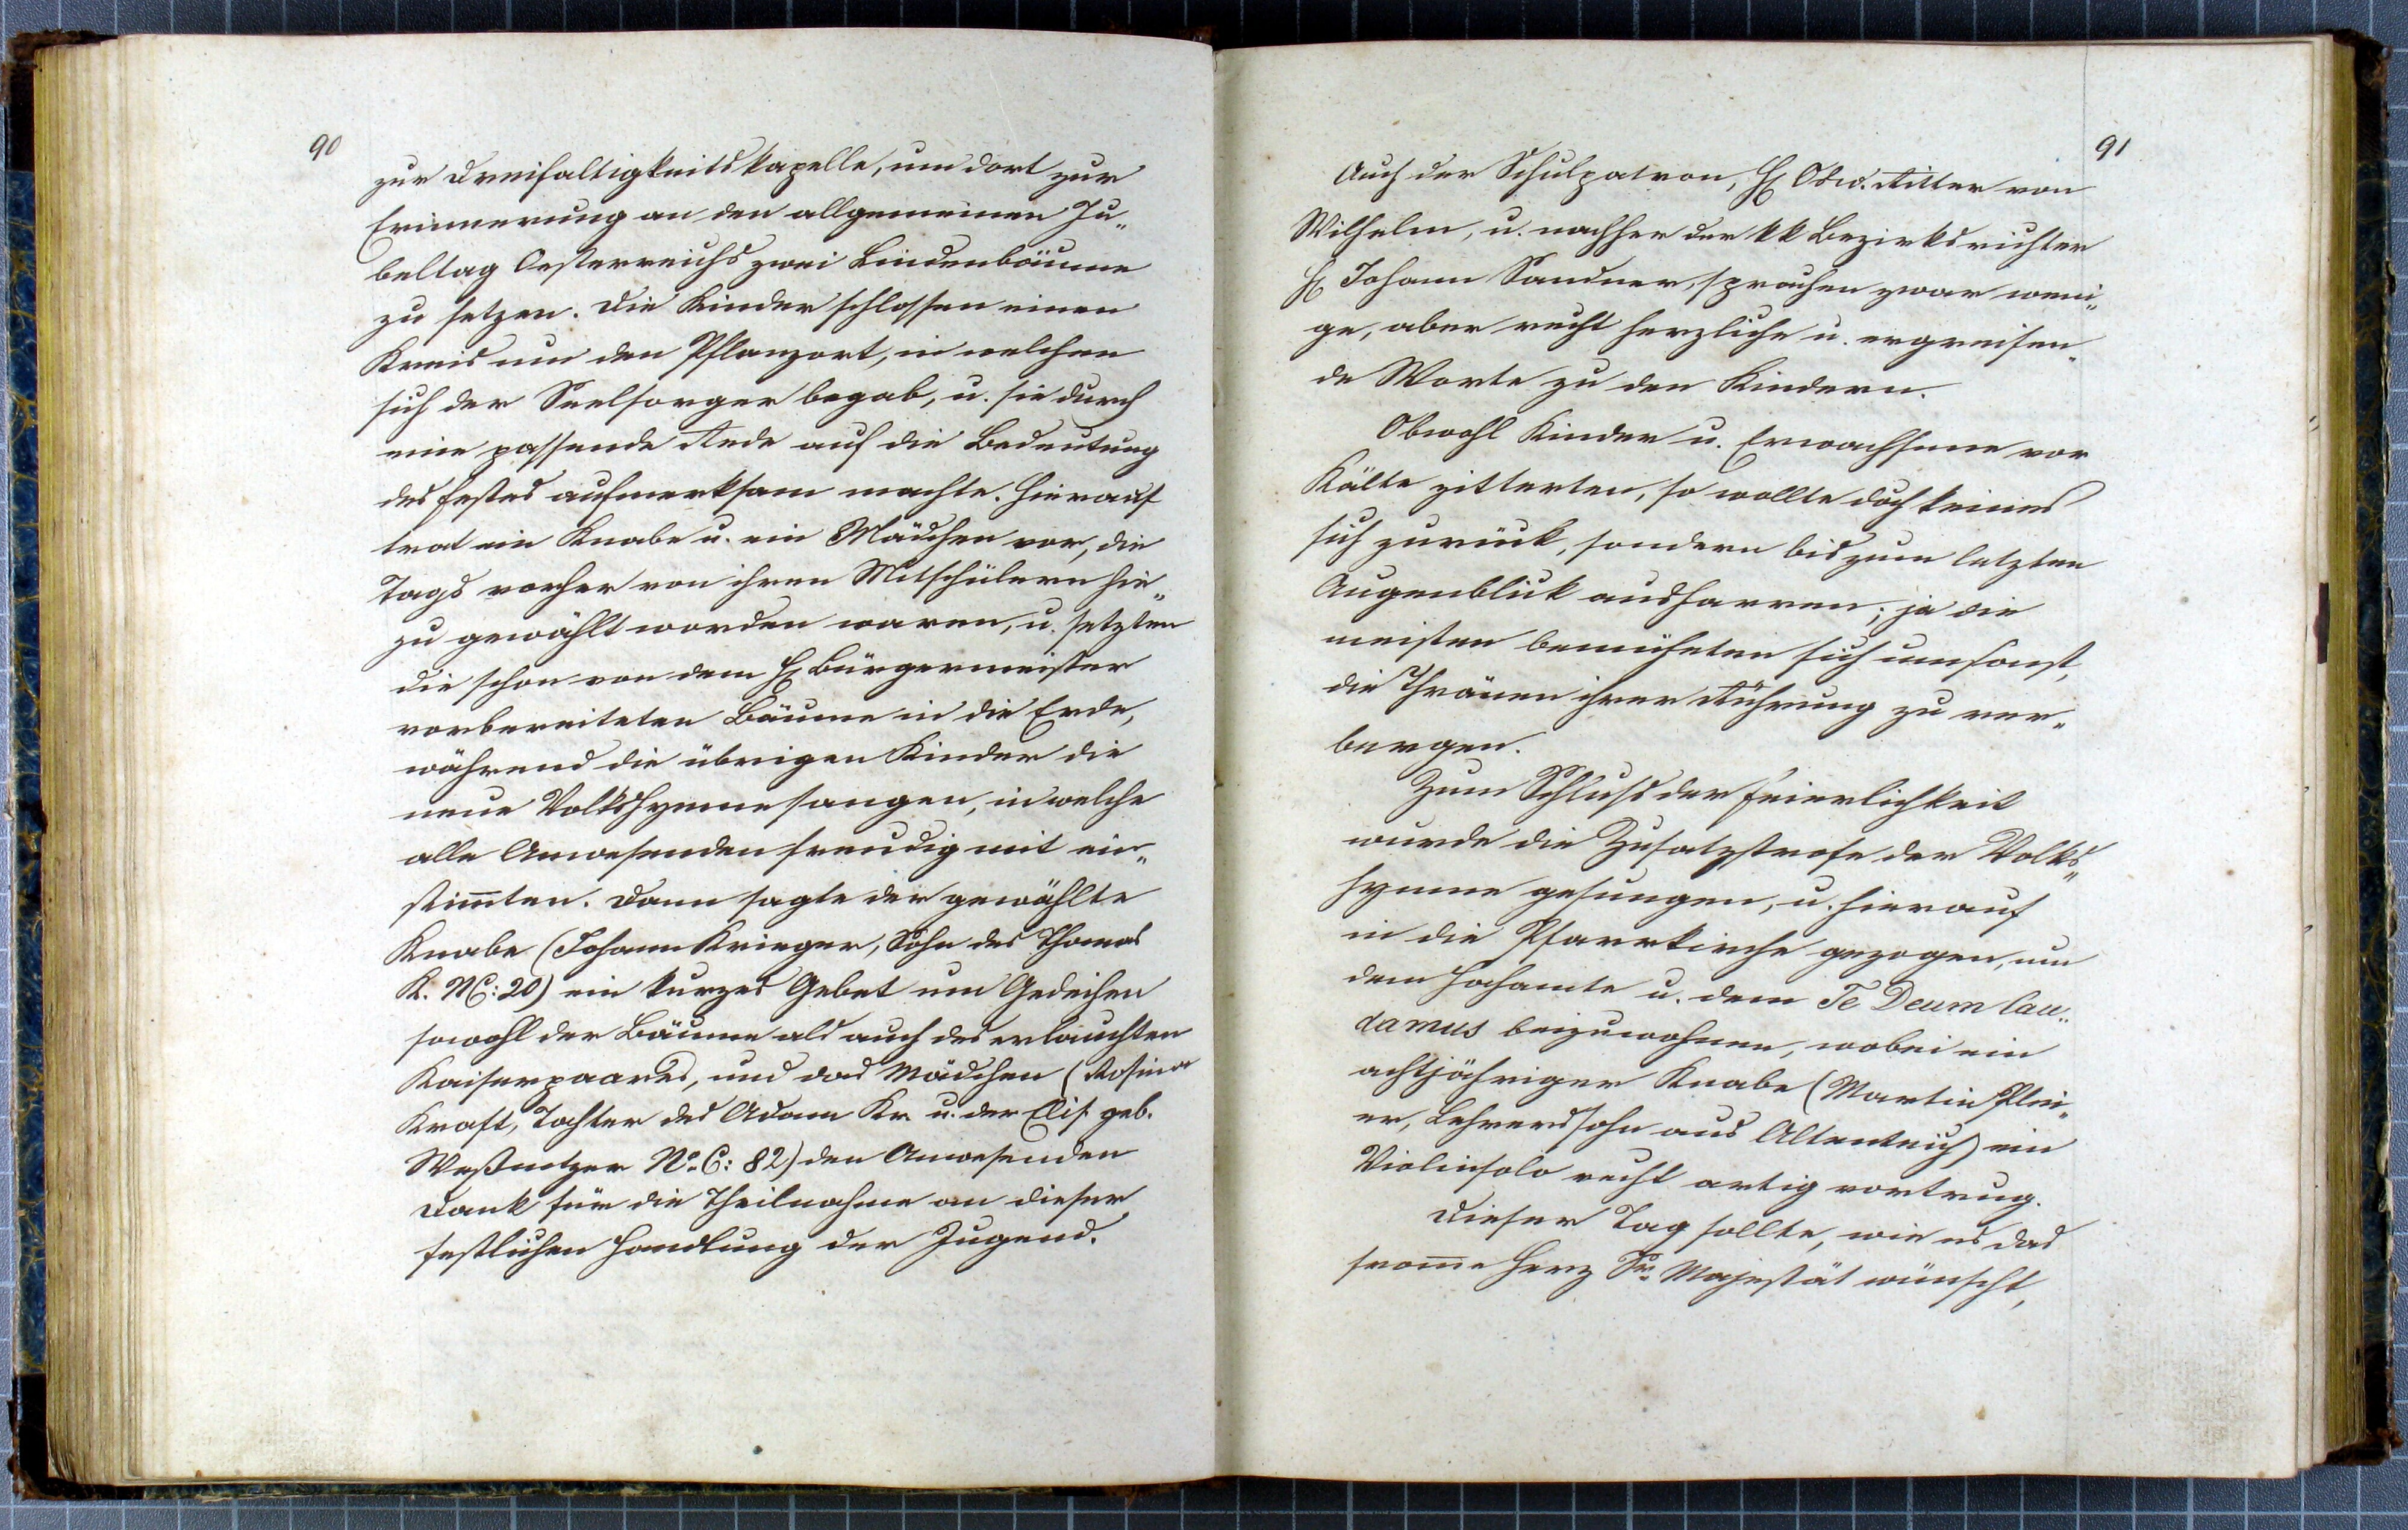 90
zur Dreifaltigkeitskapelle, um dort zur
Erinnerung an den allgemeinen Ju„
beltag Oesterreichs zwei Lindenbäume
zu setzen. Die Kinder schlossen einen
Kreis um den Pflanzort, in welchen
sich der Seelsorger begab, u. sie durch
eine passende Rede auf die Bedeutung
des Festes aufmerksam machte. Hierauf
trat ein Knabe u. ein Mädchen vor, die
Tags vorher von ihren Mitschülern hie„
zu gewählt worden waren, u. setzten
die schon von dem H Bürgermeister
vorbereiteten Bäume in die Erde,
während die übrigen Kinder die
neue Volkshymne sangen, in welche
alle Anwesenden freudig mit ein„
stim̅ten. Dann sagte der gewählte
Knabe (Johann Krieger, Sohn des Thomas
K. NC: 20) ein kurzes Gebet um Gedeihen
sowohl der Bäume als auch des erlauchten
Kaiserpaares, und das Mädchen (Rosina
Kraft, Tochter des Adam Kr. u. der Elis. geb.
No. C: 82) den Anwesenden
Dank für die Theilnahme an dieser
festlichen Handlung der Jugend.
91
Auch der Schulpatron, H Osw. Ritter von
Wilhelm, u. nachher der kk Bezirksrichter
H Johann Sandner, sprachen zwar weni„
ge, aber recht herzliche u. ergreifen„
de Worte zu den Kindern.
Obwohl Kinder u. Erwachsene vor
Kälte zitterten, so wollte doch keines
sich zurück, sondern bis zum letzten
Augenblick ausharren; ja die
meisten bemüheten sich umsonst,
die Thränen ihrer Rührung zu ver„
bergen.
Zum Schluß der Feierlichkeit
wurde die Zusatzstrofe der Volks„
hymne gesungen, u. hierauf
in die Pfarrkirche gezogen, um
dem Hochamte u. dem Te Deum lau„
damus beizuwohnen, wobei ein
achtjähriger Knabe (Martin Plei„
er, Lehrerssohn aus Altenteich) ein
Violinsolo recht artig vortrug.
Dieser Tag sollte, wie es das
from̅e Herz Sr. Majestät wünscht,